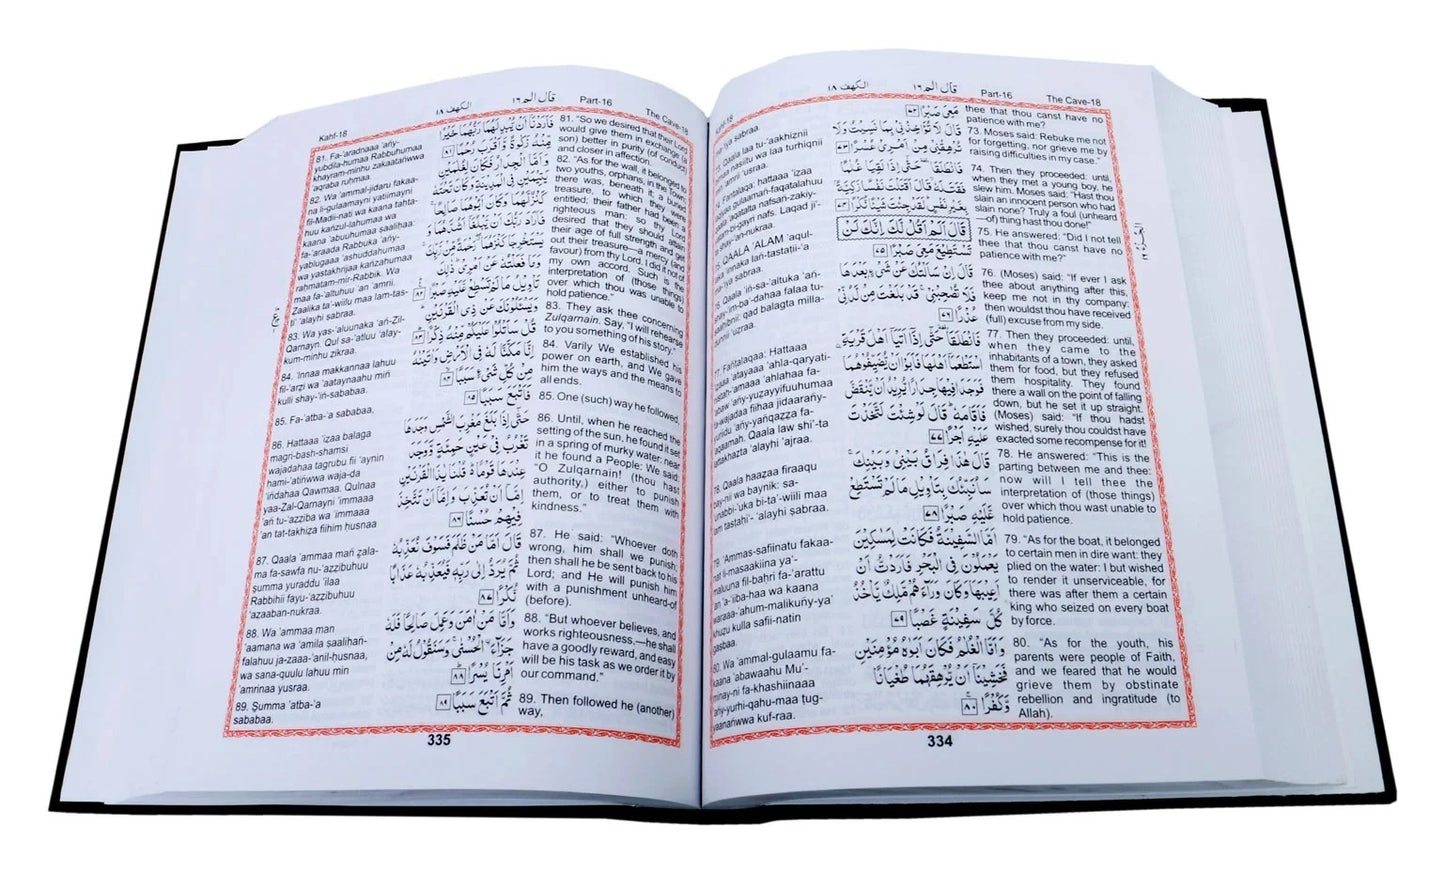 الكهف ١٨
قال الم ١٦
Part-16
The Cave-18
Kahf-18
ma-'iya sabraa.
73. Qaala laa tu-'aakhiznii
bimaa nasiitu wa laa turhiqnii
min 'amrii 'usraa.
74. Fantalaqaa: hattaaa 'izaa
laqiyaa gulaamañ-faqatalahuu
qaala 'aqatalta nafsañ-zakiy-
yatam-bi-gayri nafs. Laqad ji'-
ta shay-'an-nukraa.
75. QAALA 'ALAM 'aqul-
laka 'innaka lañ-tastatii-'a
ma-'iya sabraa.
76. Qaala 'iñ-sa-altuka 'añ-
shay-'im-ba'-dahaa falaa tu-
saahibnii: qad balagta milla-
dunnii 'uzraa.
77. Fañtalaqaa: Hattaaa
'izaaa 'atayaaa 'ahla-qaryati-
nistat'-amaaa 'ahlahaa fa-
'abaw 'añy-yuzayyifuuhumaa
fa-wajadaa fiihaa jidaarañy-
yuriidu 'añy-yañqazza fa-
'aqaamah. Qaala law shi'-ta
lattakhazta 'alayhi 'ajraa.
78. Qaala haazaa firaaqu
bay-nii wa baynik: sa-
'unabbi-'uka bi-ta'-wiili maa
lam tastati'- 'alayhi sabraa.
79. 'Ammas-safiinatu fakaa-
nat li-masaakiina ya'-
maluuna fil-bahri fa-'arattu
'an 'a-'iiba-haa wa kaana
waraaa-'ahum-malikuñy-ya'
khuzu kulla safii-natin
gasbaa.
80. Wa 'ammal-gulaamu fa-
kaana 'abawaahu Mu'-
minay-ni fa-khashiinaaa
'añy-yurhi-qahu-maa tug-
yaanañwwa kuf-raa.
مَعِيَ صَبْرًا ٧٢
قَالَ لَا تُؤَاخِذْنِي بِمَا نَسِيتُ وَلَا
تُرْهِقْنِي مِنْ أَمْرِي عُسْرًا ٧٣
فَانْطَلَقَا حَتَّى إِذَا لَقِيَا غُلَمًا
فَقَتَلَهُ قَالَ أَقَتَلْتَ نَفْسًا زَكِيَّةً
بِغَيْرِ نَفْسٍ لَقَدْ جِئْتَ شَيْئًا نُكْرًا ٧٤
قَالَ أَلَمْ أَقُلْ لَكَ إِنَّكَ لَنْ
تَسْتَطِيعَ مَعِيَ صَبْرًا ٧٥
قَالَ إِنْ سَأَلْتُكَ عَنْ شَيْءٍ بَعْدَهَا
فَلَا تُصَاحِبْنِي قَدْ بَلَغْتَ مِنْ لَدُنِّي
عُذْرًا ٧٦
فَانْطَلَقَا حَتَّى إِذَا أَتَيَا أَهْلَ قَرْيَةِ
اسْتَطْعَمَا أَهْلَهَا فَأَبَوْا أَنْ يُضَيِّفُوهُمَا
فَوَجَدَا فِيهَا جِدَارًا يُرِيدُ أَنْ يَنْقَضَّ
فَأَقَامَهُ قَالَ لَوْ شِئْتَ لَتَّخَذْتَ
عَلَيْهِ أَجْرًا ٧٧
قَالَ هَذَا فِرَاقُ بَيْنِي وَبَيْنِكَ
سَأُنَبِّئُكَ بِتَأْوِيلِ مَا لَمْ تَسْتَطِعْ
عَلَيْهِ صَبْرًا ٧٨
أَمَّا السَّفِينَةُ فَكَانَتْ لِمَسَكِينَ
يَعْمَلُونَ فِي الْبَحْرِ فَأَرَدْتُ أَنْ
أَعِيبَهَا وَكَانَ وَرَاءَهُمْ مَلِكٌ يَأْخُذُ
كُلَّ سَفِينَةٍ غَصْبًا ٧٩
وَأَمَّا الْغُلَمُ فَكَانَ أَبَوَاهُ مُؤْمِنَيْنِ
فَخَشِينَا أَنْ يُرْهِقَهُمَا طُغْيَانًا
وَكُفْرًا ٨٠
thee that thou canst have no
patience with me?
73. Moses said: Rebuke me not
for forgetting, nor grieve me by
raising difficulties in my case."
74. Then they proceeded: until,
when they met a young boy, he
slew him. Moses said: "Hast thou
slain an innocent person who had
slain none? Truly a foul (unheard
—of) thing hast thou done!"
75. He answered: "Did I not tell
thee that thou canst have no
patience with me?"
76. (Moses) said: "If ever I ask
thee about anything after this,
keep me not in thy company:
then wouldst thou have received
(full) excuse from my side.
77. Then they proceeded: until,
when they came to the
inhabitants of a town, they asked
them for food, but they refused
them hospitality. They found
there a wall on the point of falling
down, but he set it up straight.
(Moses) said: "If thou hadst
wished, surely thou couldst have
exacted some recompense for it!
78. He answered: "This is the
parting between me and thee:
now will I tell thee the
interpretation of (those things)
over which thou wast unable to
hold patience.
79. "As for the boat, it belonged
to certain men in dire want: they
plied on the water: I but wished
to render it unserviceable, for
there was after them a certain
king who seized on every boat
by force.
80. "As for the youth, his
parents were people of Faith,
and we feared that he would
grieve them by obstinate
rebellion and ingratitude (to
Allah).
334
الكهف ١٨
قال الم ١٦
Part-16
The Cave-18
Kahf-18
81. Fa-'aradnaaa 'añy-
yubdila-humaa Rabbuhumaa
khayram-minhu zakaatañwwa
'aqraba ruhmaa.
82. Wa 'ammal-jidaru fakaa-
na li-gulaamayni yatiimayni
fil-Madii-nati wa kaana tahta-
huu kañzul-lahumaa wa
kaana 'abuuhumaa saalihaa:
fa-'araada Rabbuka 'añy-
yablugaaa 'ashuddahumaa
wa yastakhrijaa kañzahumaa
rahmatam-mir-Rabbik. Wa
maa fa-'altuhuu 'an 'amrii.
Zaalika ta'-wiilu maa lam-tas-
ti' 'alayhi sabraa.
83. Wa yas-'aluunaka 'añ-Zil-
Qarnayn. Qul sa-'atluu 'alay-
kum-minhu zikraa.
84. 'Innaa makkannaa lahuu
fil-'arzi wa 'aataynaahu miñ
kulli shay-'iñ-sababaa.
85. Fa-'atba-'a sababaa.
86. Hattaaa 'izaa balaga
magri-bash-shamsi
wajadahaa tagrubu fii 'aynin
hami-'atiñwwa waja-da
'iñdahaa Qawmaa. Qulnaa
yaa-Zal-Qarnayni 'immaaa
'añ tu-'azziba wa 'immaaa
'an tat-takhiza fiihim husnaa
87. Qaala 'ammaa mañ zala-
ma fa-sawfa nu-'azzibuhuu
summa yuraddu 'ilaa
Rabbihii fayu-'azzibuhuu
'azaaban-nukraa.
88. Wa 'ammaa man
'aamana wa 'amila saalihañ-
falahuu ja-zaaa-'anil-husnaa,
wa sana-quulu lahuu min
'amrinaa yusraa.
89. Summa 'atba-'a
sababaa.
فَأَرَدْنَا أَنْ يُبْدِلَهُمَا رَبُّهُمَا خَيْرًا
مِنْهُ زَكَوةً وَأَقْرَبَ رُحْمًا ٨١
وَأَمَّا الْجِدَارُ فَكَانَ لِغُلَمَيْنِ
يَتِيمَيْنِ فِي الْمَدِينَةِ وَكَانَ تَحْتَهُ
كَنْزٌ لَهُمَا وَكَانَ أَبُوهُمَا صَالِحًا
فَأَرَادَ رَبُّكَ أَنْ يَبْلُغَا أَشُدَّهُمَا وَ
يَسْتَخْرِجَا كَنْزَهُمَا رَحْمَةً مِنْ رَبِّكَ
وَمَا فَعَلْتُهُ عَنْ أَمْرِي ذَلِكَ
تَأْوِيلُ مَا لَمْ تَسْطِعْ عَلَيْهِ صَبْرًا ٨٢
وَيَسْئَلُونَكَ عَنْ ذِي الْقَرْنَيْنِ
قُلْ سَأَتْلُوا عَلَيْكُمْ مِنْهُ ذِكْرًا ٨٣
إِنَّا مَكَّنَّا لَهُ فِي الْأَرْضِ وَآتَيْنَهُ
مِنْ كُلِّ شَيْءٍ سَبَبًا ٨٤
فَأَتْبَعَ سَبَبًا ٨٥
حَتَّى إِذَا بَلَغَ مَغْرِبَ الشَّمْسِ وَجَدَهَا
تَغْرُبُ فِي عَيْنٍ حَمِئَةٍ وَوَجَدَ
عِنْدَهَا قَوْمًا قُلْنَا يَذَا الْقَرْنَيْنِ
إِمَّا أَنْ تُعَذِّبَ وَإِمَّا أَنْ تَتَّخِذَ
فِيهِمْ حُسْنًا ٨٦
قَالَ أَمَّا مَنْ ظَلَمَ فَسَوْفَ نُعَذِّبُهُ
ثُمَّ يُرَدُّ إِلَى رَبِّهِ فَيُعَذِّبُهُ عَذَابًا
نُكْرًا ٨٧
وَأَمَّا مَنْ آمَنَ وَعَمِلَ صَالِحًا فَلَهُ
جَزَاءَ الْحُسْنَى وَسَنَقُولُ لَهُ مِنْ
أَمْرِنَا يُسْرًا ٨٨
ثُمَّ أَتْبَعَ سَبَبًا ٨٩
81. "So we desired that their Lord
would give them in exchange (a
son) better in purity (of conduct)
and closer in affection.
82. "As for the wall, it belonged to
two youths, orphans, in the Town;
there was, beneath it, a buried
treasure, to which they were
entitled; their father had been a
righteous man: so thy Lord
desired that they should attain
their age of full strength and get
out their treasure—a mercy (and
favour) from thy Lord. I did it not of
my own accord. Such is the
interpretation of (those things)
over which thou was unable to
hold patience."
83. They ask thee concerning
Zulqarnain. Say, "I will rehearse
to you something of his story."
84. Varily We established his
power on earth, and We gave
him the ways and the means to
all ends.
85. One (such) way he followed,
86. Until, when he reached the
setting of the sun, he found it set
in a spring of murky water: near
it he found a People: We said:
"O Zulqarnain! (thou hast
authority,) either to punish
them, or to treat them with
kindness."
87. He said: "Whoever doth
wrong, him shall we punish;
then shall he be sent back to his
Lord; and He will punish him
with a punishment unheard-of
(before).
88. "But whoever believes, and
works righteousness,—he shall
have a goodly reward, and easy
will be his task as we order it by
our command."
89. Then followed he (another)
way,
335